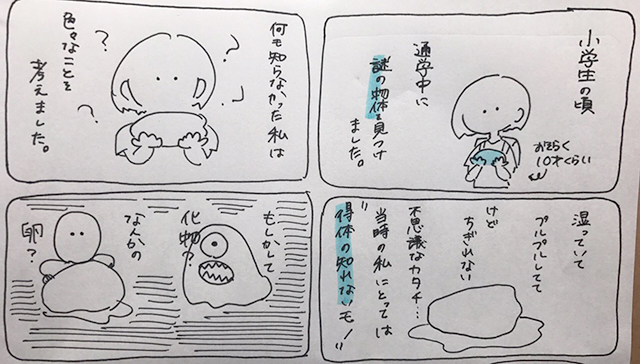 小学生の頃
通学中に
謎の物体を見つけ
ました。
おそらく
10才くらい
何も知らなかった私は
色々なことを
考えました。
?
?
?
湿っていて
プルプルしてて
ちぎれない
けど
不思議なカタチ…
当時の私にとっては
"得体の知れないモノ"
もしかして
化物?
なんかの
卵?